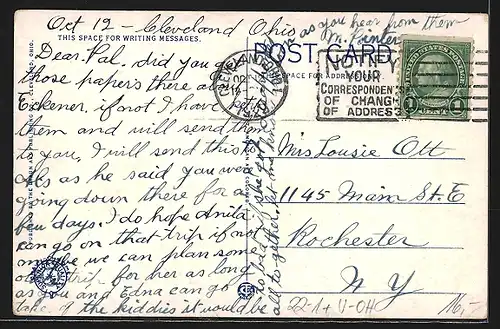 Oct 12 - Cleveland Ohio
THIS SPACE FOR WRITING MESSAGES.
Dear Pal. did you get
those papers there at
Eckener, if not I have
them and will send them
to you, I will send this to
as he said you were
going down there for a
few days. I do hope Anita
can go on that trip if not
maybe we can plan some
trip for her as long
as you and Edna can go
take of the kiddies it would be
so bad if she got
all together. let me
as you hear from them
M.
POST CARD
SPACE FOR ADDRESS
CLEVELAND, OHIO
NOTIFY
YOUR
CORRESPONDENTS
OF CHANGE
OF ADDRESS
UNITED STATES POSTAGE
1 CENT 1
Mrs Lousie Ott
1145 Main St. E
Rochester
N Y
22 1+ V-OH
16,-